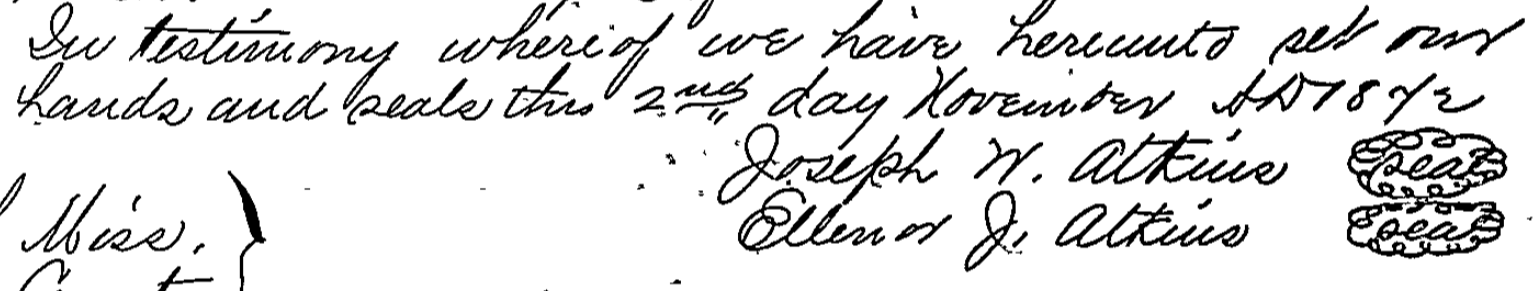 In testimony whereof we have hereunto set our
hands and seals this 2nd day November AD 1872
Joseph W. Atkins seal
Ellenor J. Atkins seal
Miss.